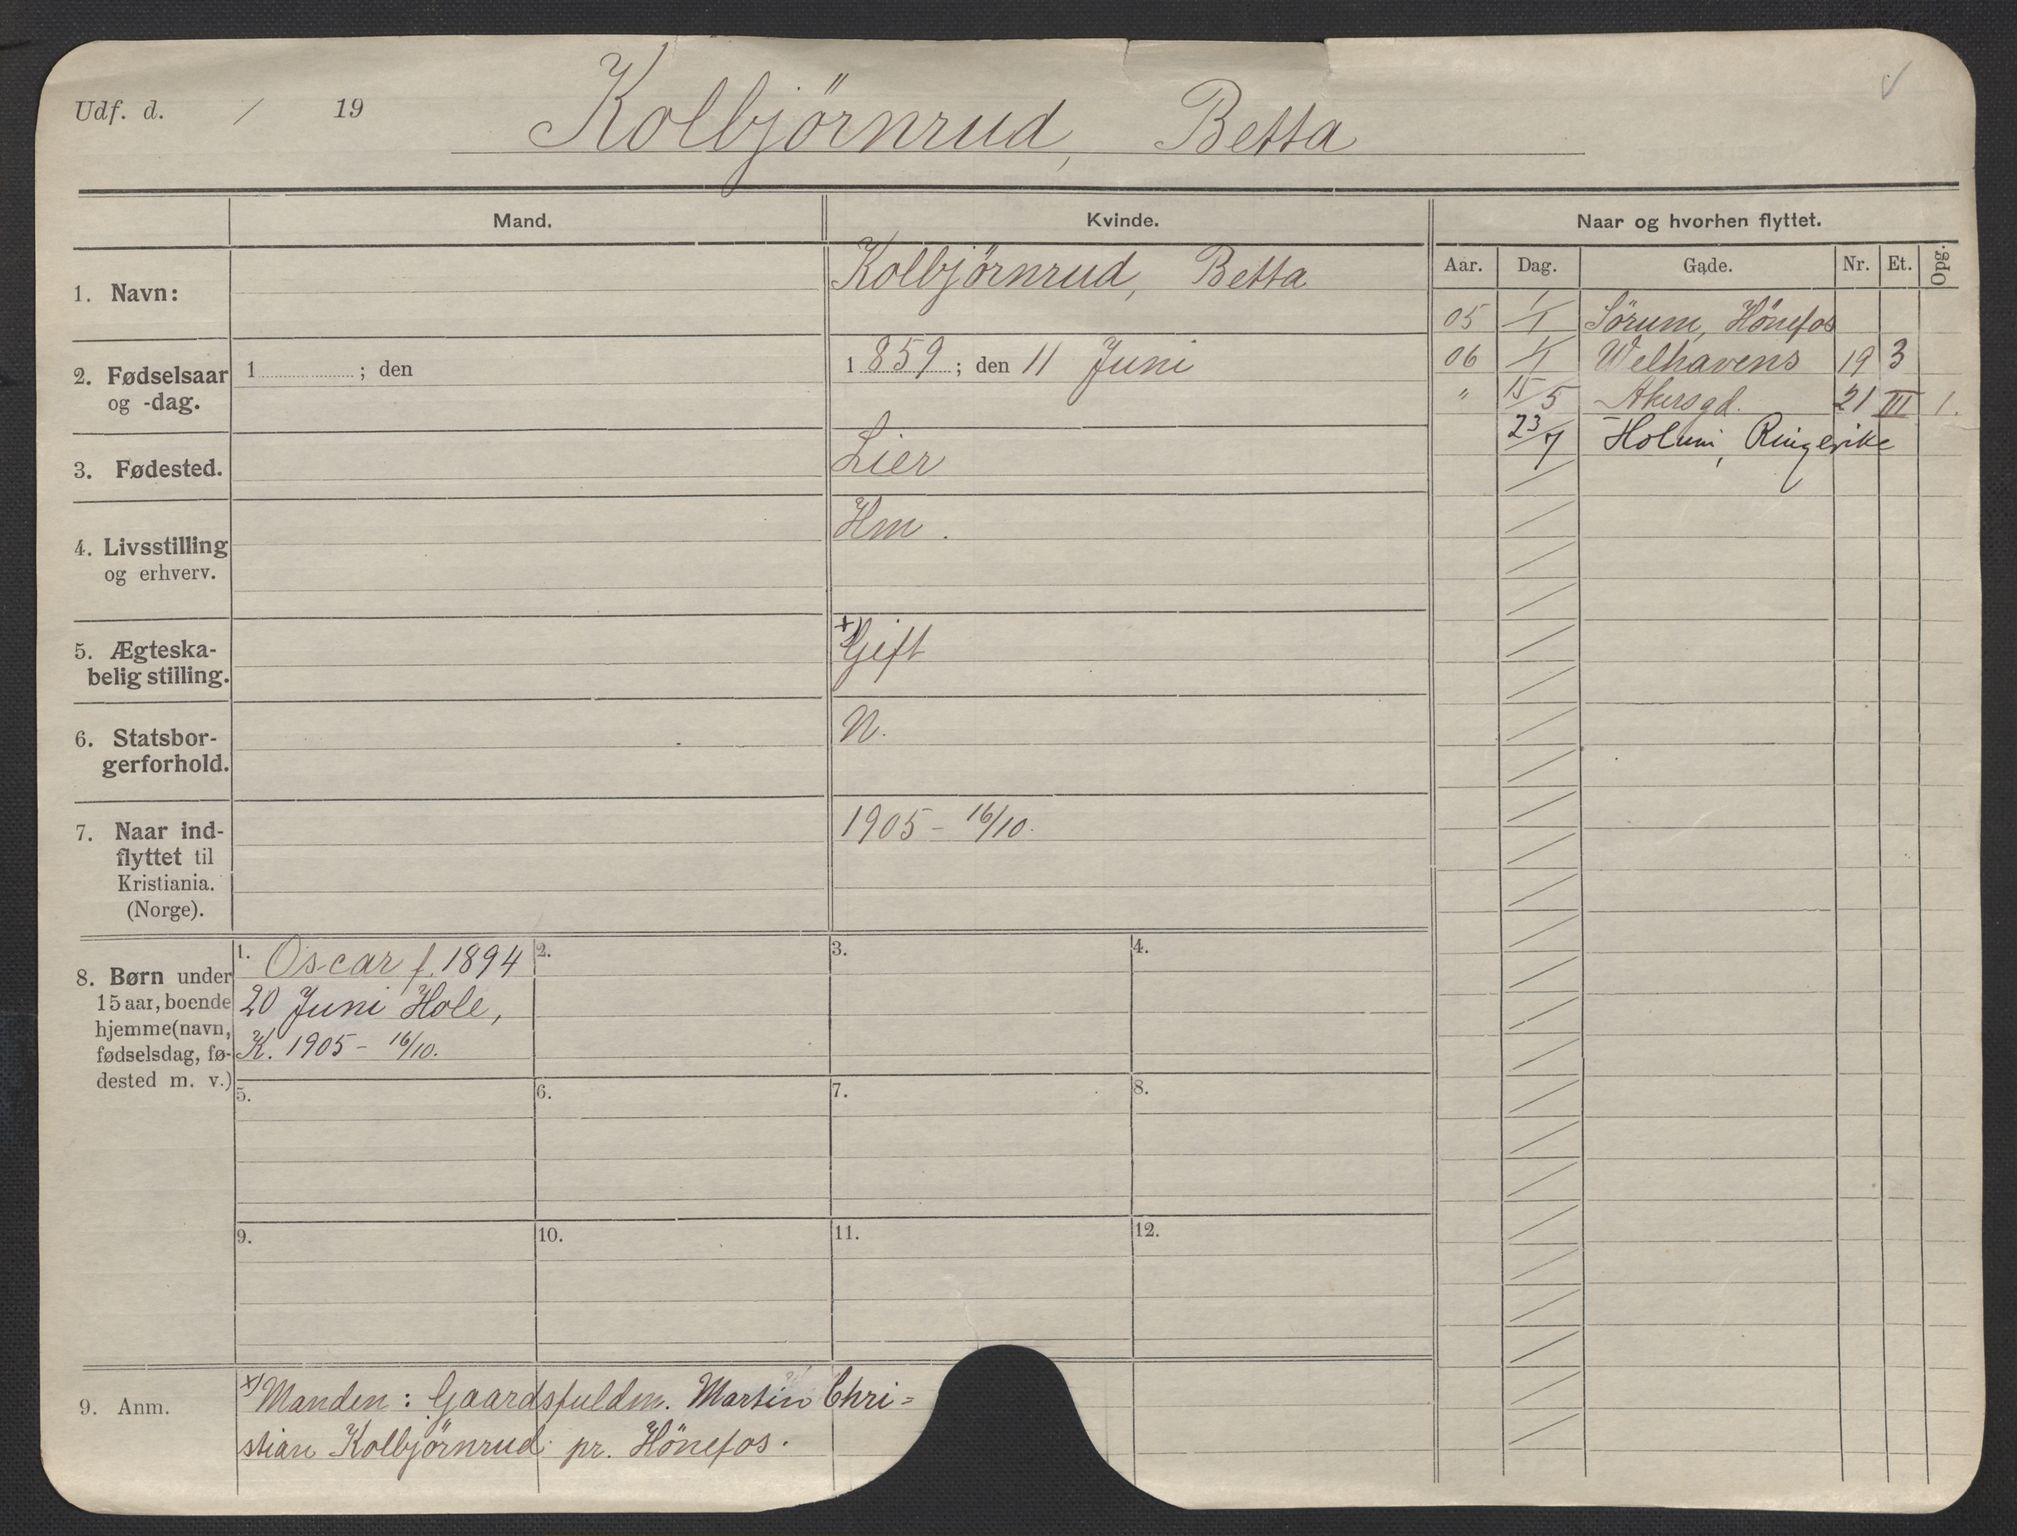 Udf. d. / 19 Kolbjørnrud, Betta
Mand. Kvinde. Naar og hvorhen flyttet.
Aar. Dag. Gade. Nr. Et. Opg.
1. Navn: Kolbjørnrud, Betta
05 1/1 Sörum, Hönefos
06 1/1 Welhavens 19 3
" 15/5 Akersgd. 21 III 1.
23/7 Ringerike
2. Fødselsaar 1 ; den 1859; den 11 Juni
og -dag.
3. Fødested. Lier
4. Livsstilling Hm.
og erhverv.
5. Ægteska- +) Gift
belig stilling.
6. Statsbor- N.
gerforhold.
7. Naar ind- 1905 - 16/10.
flyttet til
Kristiania.
(Norge).
8. Børn under
15 aar, boende
hjemme (navn,
fødselsdag, fø-
dested m. v.)
1. Oscar f. 1894
20 Juni Hole,
K. 1905 - 16/10.
2.
3.
4.
5.
6.
7.
8.
9.
10.
11.
12.
9. Anm. x) Manden: Gaardsfuldm. Martin Chri=
stian Kolbjørnrud pr. Hönefos.